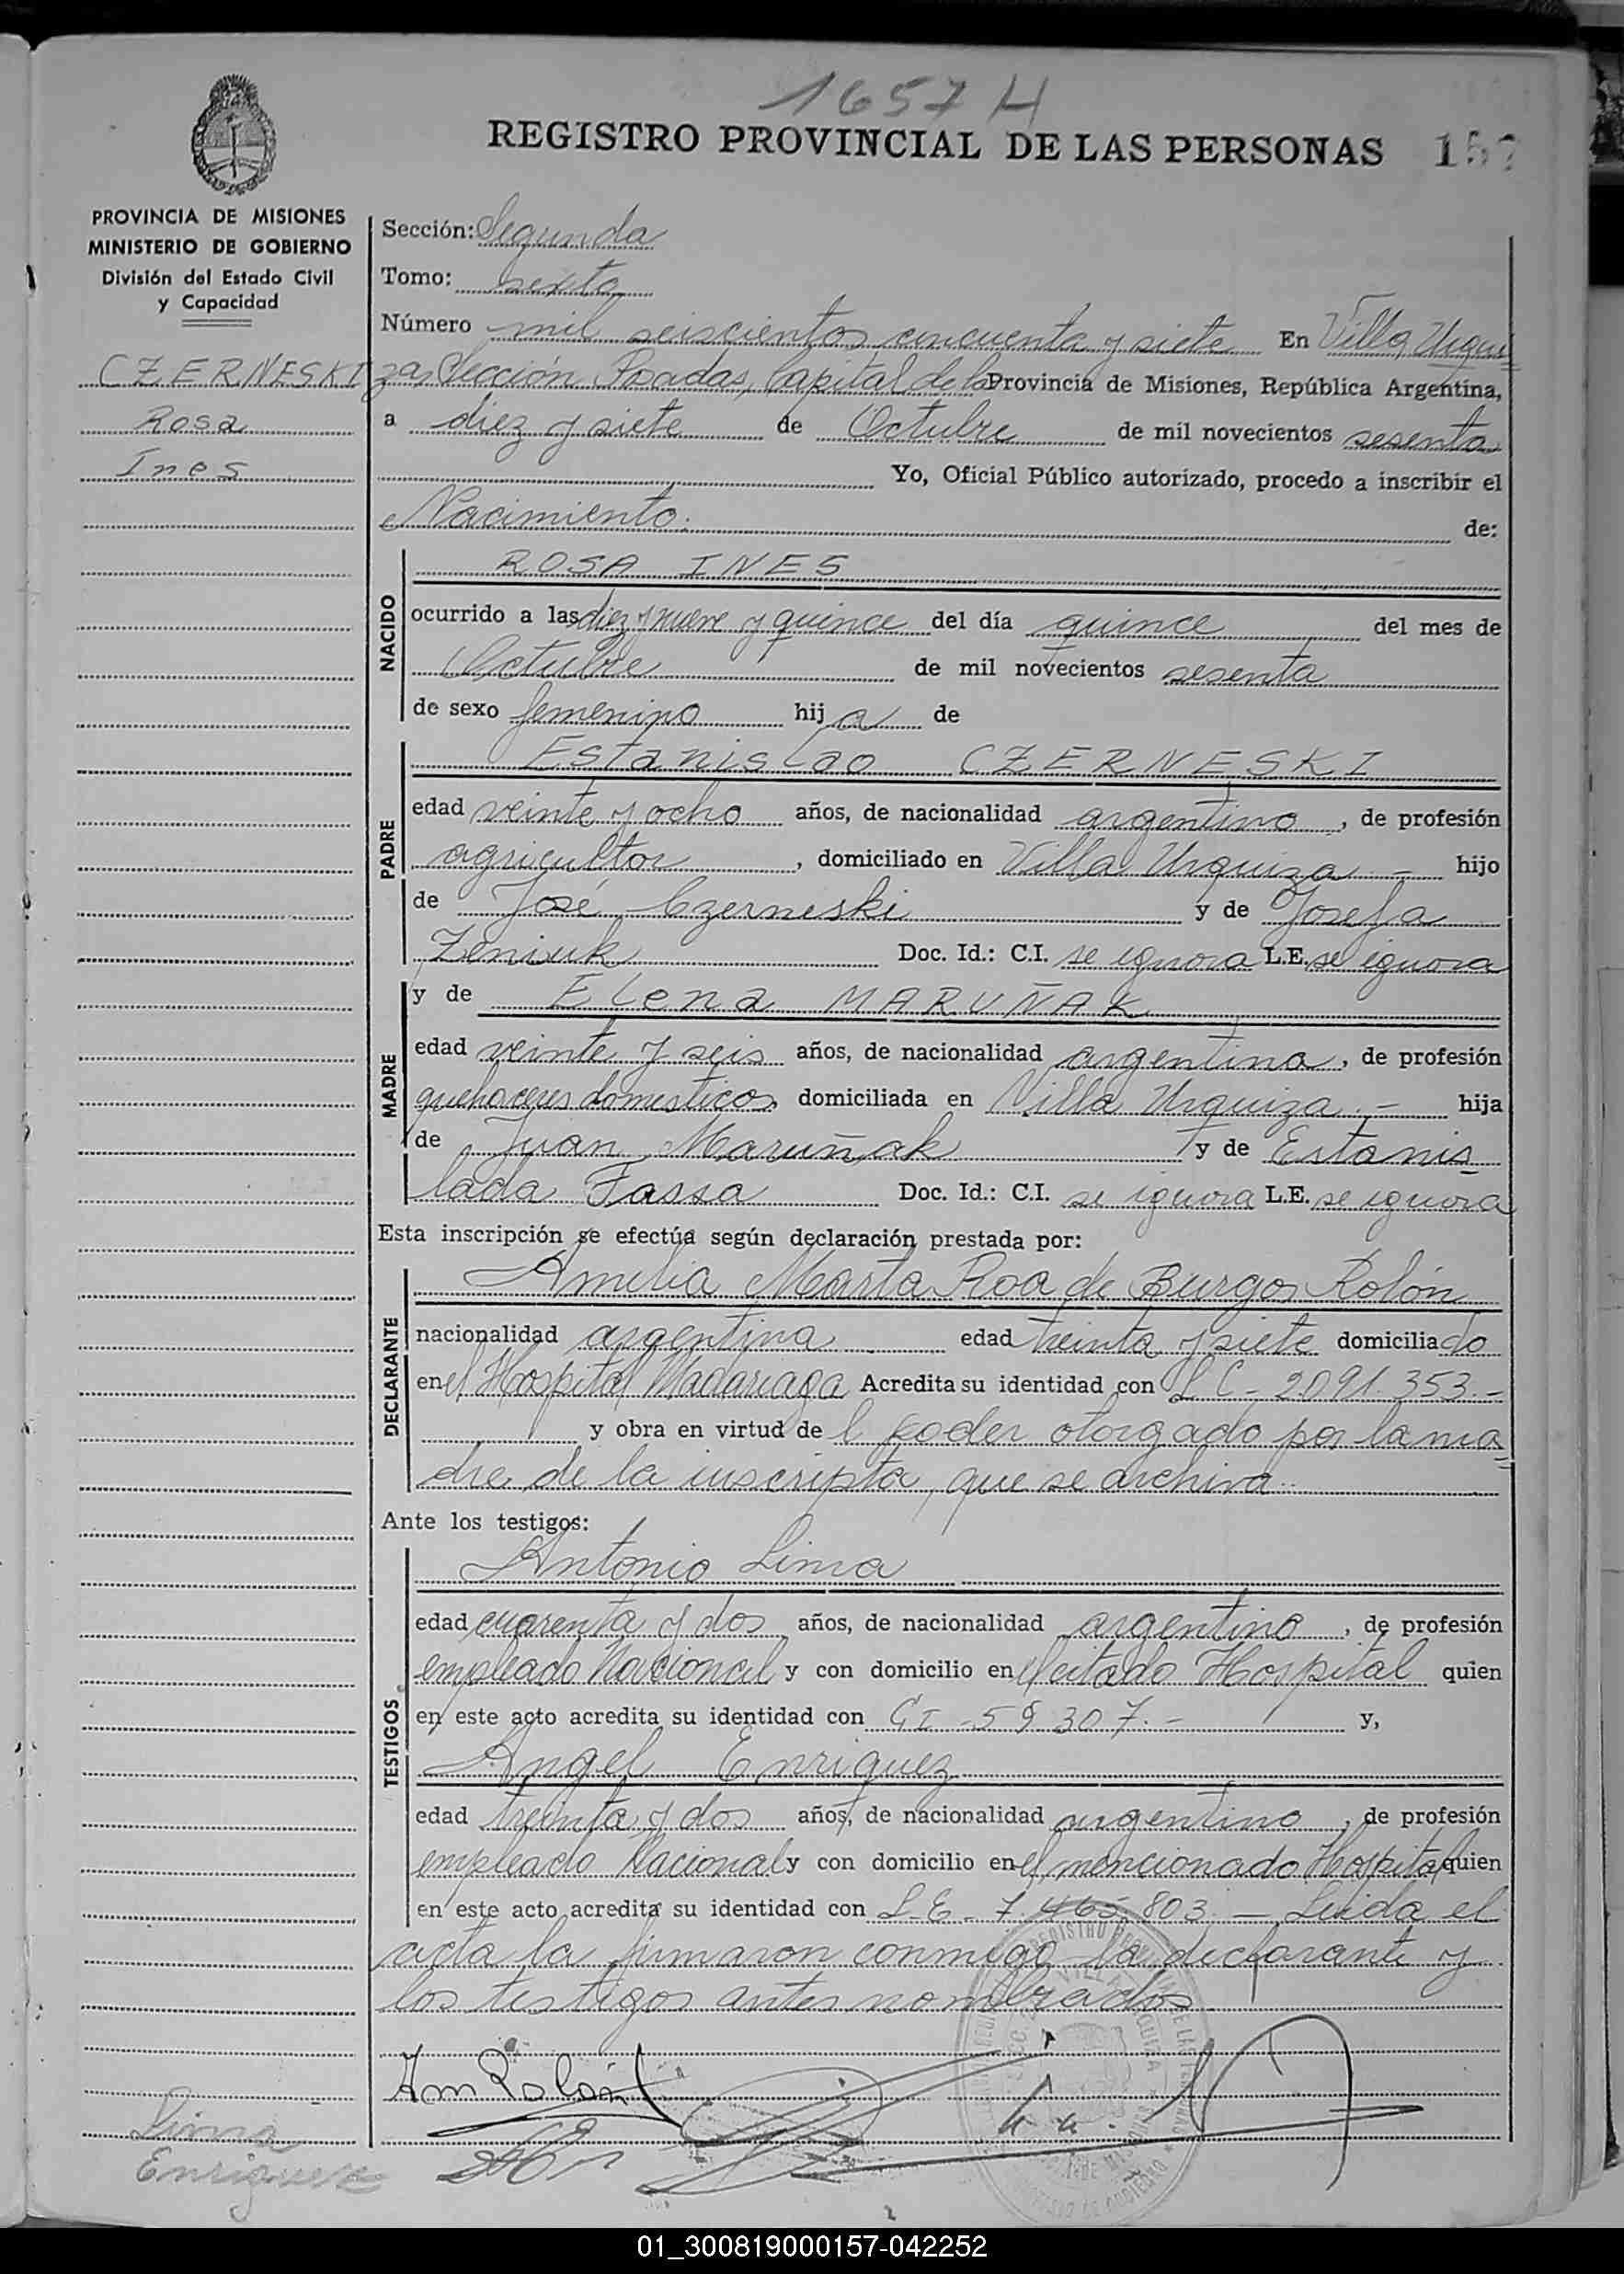 1657 H
REGISTRO PROVINCIAL DE LAS PERSONAS 157
PROVINCIA DE MISIONES
MINISTERIO DE GOBIERNO
División del Estado Civil
y Capacidad
CZERNESKI
Rosa
Ines
Sección: Segunda
Tomo: sexto
Número mil seiscientos cincuenta y siete En Villa Urqui
za, Sección Posadas, Capital de la Provincia de Misiones, República Argentina,
a diez y siete de Octubre de mil novecientos sesenta
Yo, Oficial Público autorizado, procedo a inscribir el
Nacimiento. de:
NACIDO
ROSA INES
ocurrido a las diez y nueve y quince del día quince del mes de
Octubre de mil novecientos sesenta
de sexo femenino hij a de
PADRE
Estanislao CZERNESKI
edad veinte y ocho años, de nacionalidad argentino, de profesión
agricultor, domiciliado en Villa Urquiza - hijo
de José Czerneski y de Josefa
Zeniuk Doc. Id.: C.I. se ignora L.E. se ignora
MADRE
y de Elena MARUÑAK
edad veinte y seis años, de nacionalidad argentina, de profesión
quehaceres domesticos, domiciliada en Villa Urquiza.- hija
de Juan Maruñak y de Estanis
lada Fassa Doc. Id.: C.I. se ignora L.E. se ignora
Esta inscripción se efectúa según declaración prestada por:
DECLARANTE
Amelia Marta Roa de Burgos Rolón
nacionalidad argentina edad treinta y siete domiciliado
en el Hospital Madariaga Acredita su identidad con L C - 2.091.353.-
y obra en virtud de l poder otorgado por la ma
dre de la inscripta, que se archiva..
Ante los testigos:
TESTIGOS
Antonio Lima
edad cuarenta y dos años, de nacionalidad argentino, de profesión
empleado Nacional y con domicilio en el citado Hospital quien
en este acto acredita su identidad con C.I - 59.307.- y,
Angel Enriquez
edad treinta y dos años, de nacionalidad argentino, de profesión
empleado Nacional y con domicilio en el mencionado Hospital quien
en este acto acredita su identidad con L-E - 7.465.803 - Leida el
acta la firmaron conmigo la declarante y
los testigos antes nombrados
Am Rolón
Lima
Enriquez
01_300819000157-042252